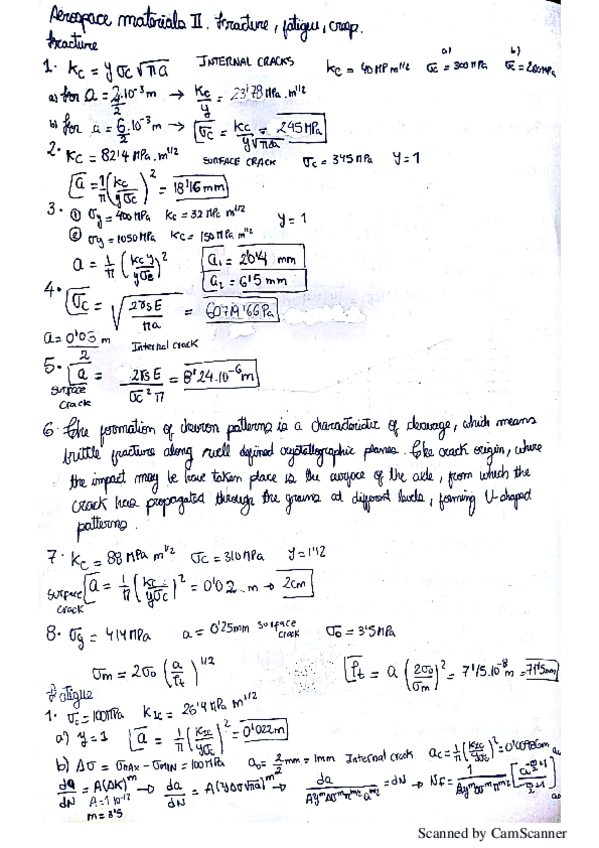 Aerospace materials II. Fracture, fatigue, creep.
Fracture
1. Kc = y σc √πa INTERNAL CRACKS Kc = 40 MPa m^1/2 a) σc = 300 MPa b) σc = 260 MPa
a) for a = 2/2·10^-3 m → Kc/y = 23'78 MPa·m^1/2
b) for a = 6/2·10^-3 m → σc = Kc/(y√πa) = 245 MPa
2. Kc = 82'4 MPa·m^1/2 SURFACE CRACK σc = 345 MPa y = 1
a = 1/π (Kc/yσc)^2 = 18'16 mm
3. ① σy = 400 MPa Kc = 32 MPa m^1/2 y = 1
② σy = 1050 MPa Kc = 150 MPa m^1/2
a = 1/π ( )^2 a1 = 2'04 mm
a2 = 6'5 mm
4. σc = √(2γsE/πa) = 60719'66 Pa
a = 0'03 m /2 Internal crack
5. a = 2γsE/σc^2 π = 8'24·10^-6 m
surface crack
6. The formation of chevron patterns is a characteristic of cleavage, which means
brittle fracture along well defined crystallographic planes. The crack origin, where
the impact may be have taken place is the surface of the axle, from which the
crack has propagated through the grains at different levels, forming V-shaped
patterns.
7. Kc = 88 MPa m^1/2 σc = 310 MPa y = 1'12
surface crack a = 1/π (Kc/yσc)^2 = 0'02 m → 2cm
8. σg = 414 MPa a = 0'25mm surface crack σo = 3'5 MPa
σm = 2σo (a/ρt)^1/2 ρt = a (2σo/σm)^2 = 7'15·10^-8 m = 71'5nm
Fatigue
1. σc = 100 MPa KIc = 26'4 MPa m^1/2
a) y = 1 a = 1/π (KIc/yσc)^2 = 0'022m
b) Δσ = σMAX − σMIN = 100 MPa ao = 2/2 mm = 1mm Internal crack ac = 1/π (KIc/yσc)^2
da/dN = A(ΔK)^m → da/dN = A(yΔσ√πa)^m → da/(A y^m Δσ^m π^m/2 a^m/2) = dN → Nf = 1/(A y^m Δσ^m π^m/2) [a^(-m/2+1)/(-m/2+1)]
A = 1·10^-12
m = 3'5
Scanned by CamScanner